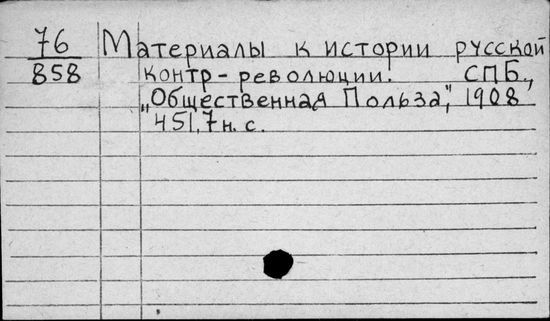 76 Материалы к истории русской
858 контр-революции. СПБ.,
„Общественная Польза“, 1908
451,7 н. с.